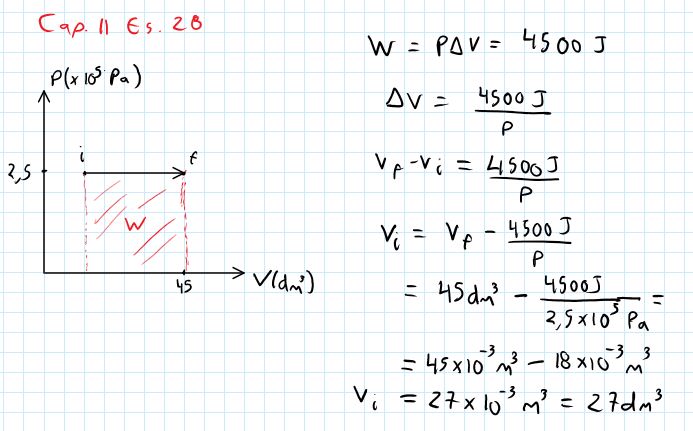 Cap. 11 Es. 28
P(x10⁵ Pa)
i
f
2,5
W
45
V(dm³)
W = PΔV = 4500 J
ΔV = 4500 J / P
Vf - Vi = 4500 J / P
Vi = Vf - 4500 J / P
= 45 dm³ - 4500 J / 2,5 x 10⁵ Pa =
= 45 x 10⁻³ m³ - 18 x 10⁻³ m³
Vi = 27 x 10⁻³ m³ = 27 dm³